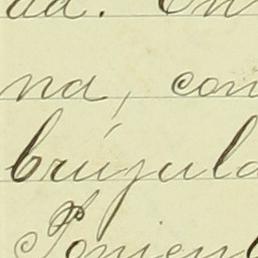 da. En
na, con
brújula
Ponien